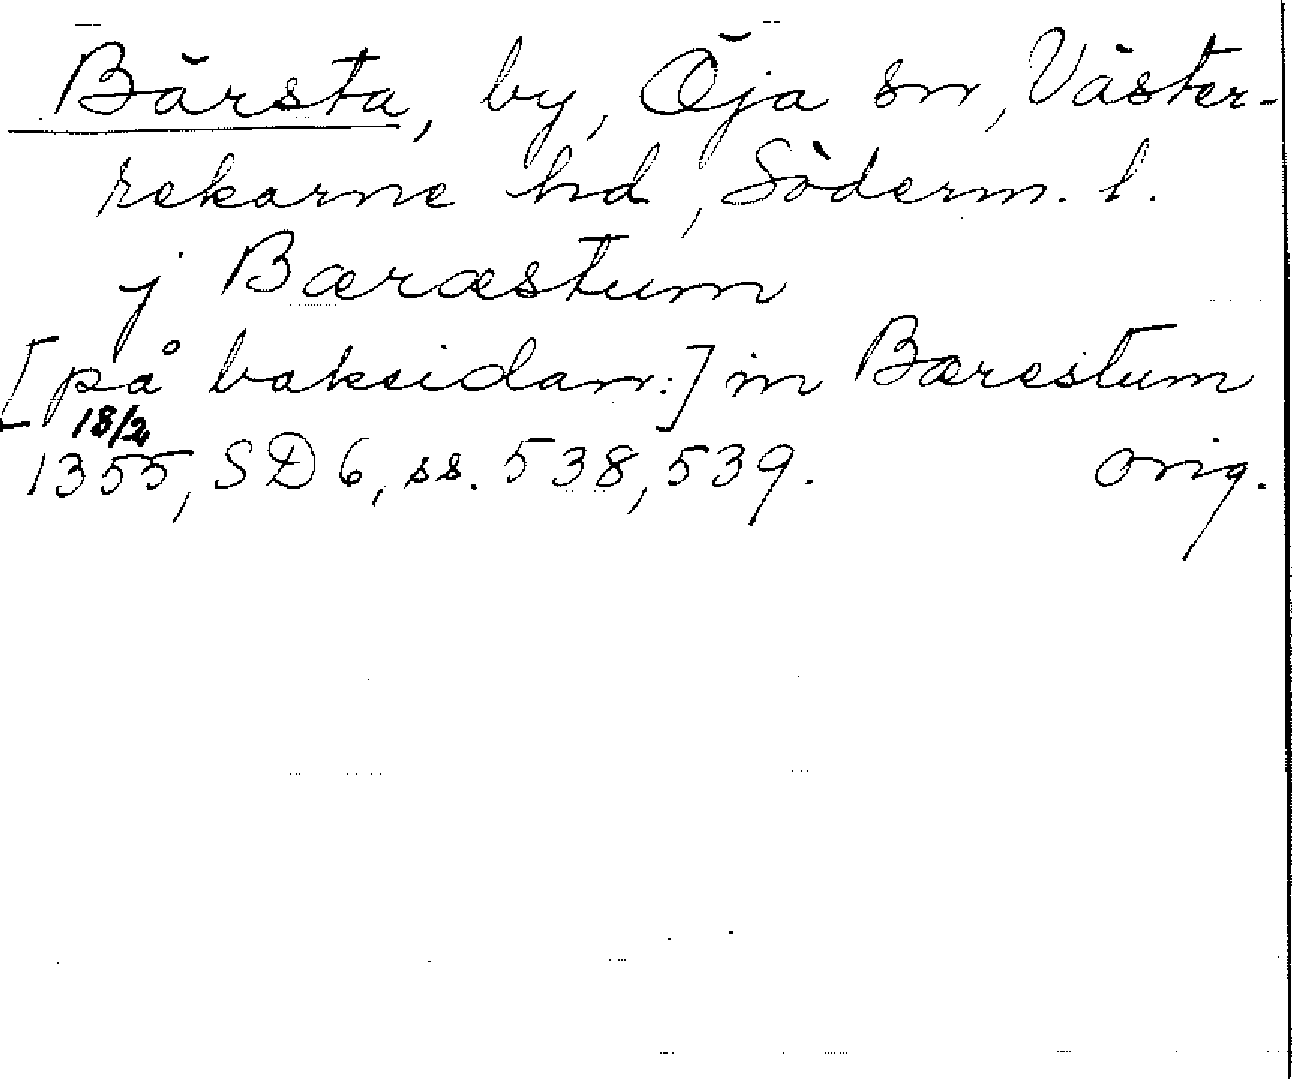 Bärsta, by, Öja sn, Väster-
rekarne hd, Söderm. l.
j Bæræstum
[på baksidan:] in Bærestum
18/2
1355, SD 6, ss. 538, 539. orig.